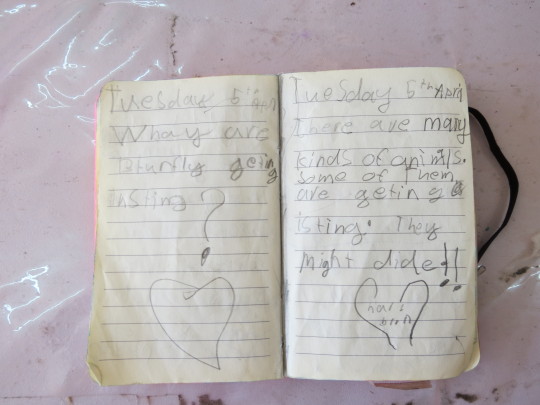 Tuesday 5th April
Whay are
geting
insting?
Tuesday 5th April
There are many
kinds of animls.
some of them
are geting
isting. They
might dide!!